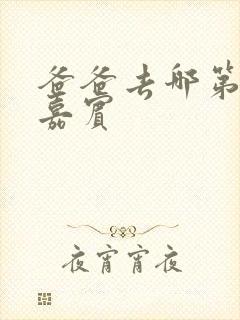 爸爸去哪第
嘉宾
夜宵宵夜